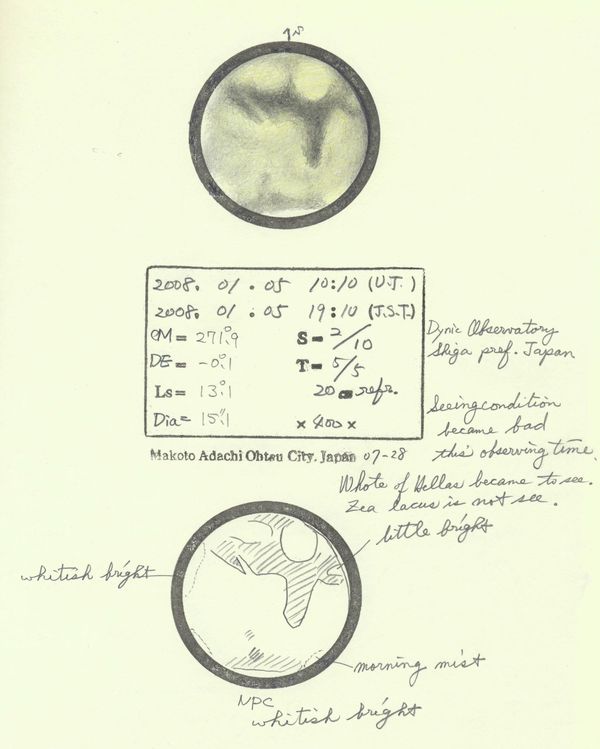 S
2008. 01. 05 10:10 (U.T.)
2008. 01. 05 19:10 (J.S.T.)
CM = 271.°9 S = 2/10
DE = -0.°1 T = 5/5
Ls = 13.°1 20 cm refr.
Dia = 15."1 × 400 ×
Dynic Observatory
Shiga pref. Japan
Seeing condition
became bad
this observing time.
Makoto Adachi Ohtsu City. Japan 07-28
Whote of Hellas became to see.
Zea lacus is not see.
little bright
whitish bright
morning mist
NPC
whitish bright